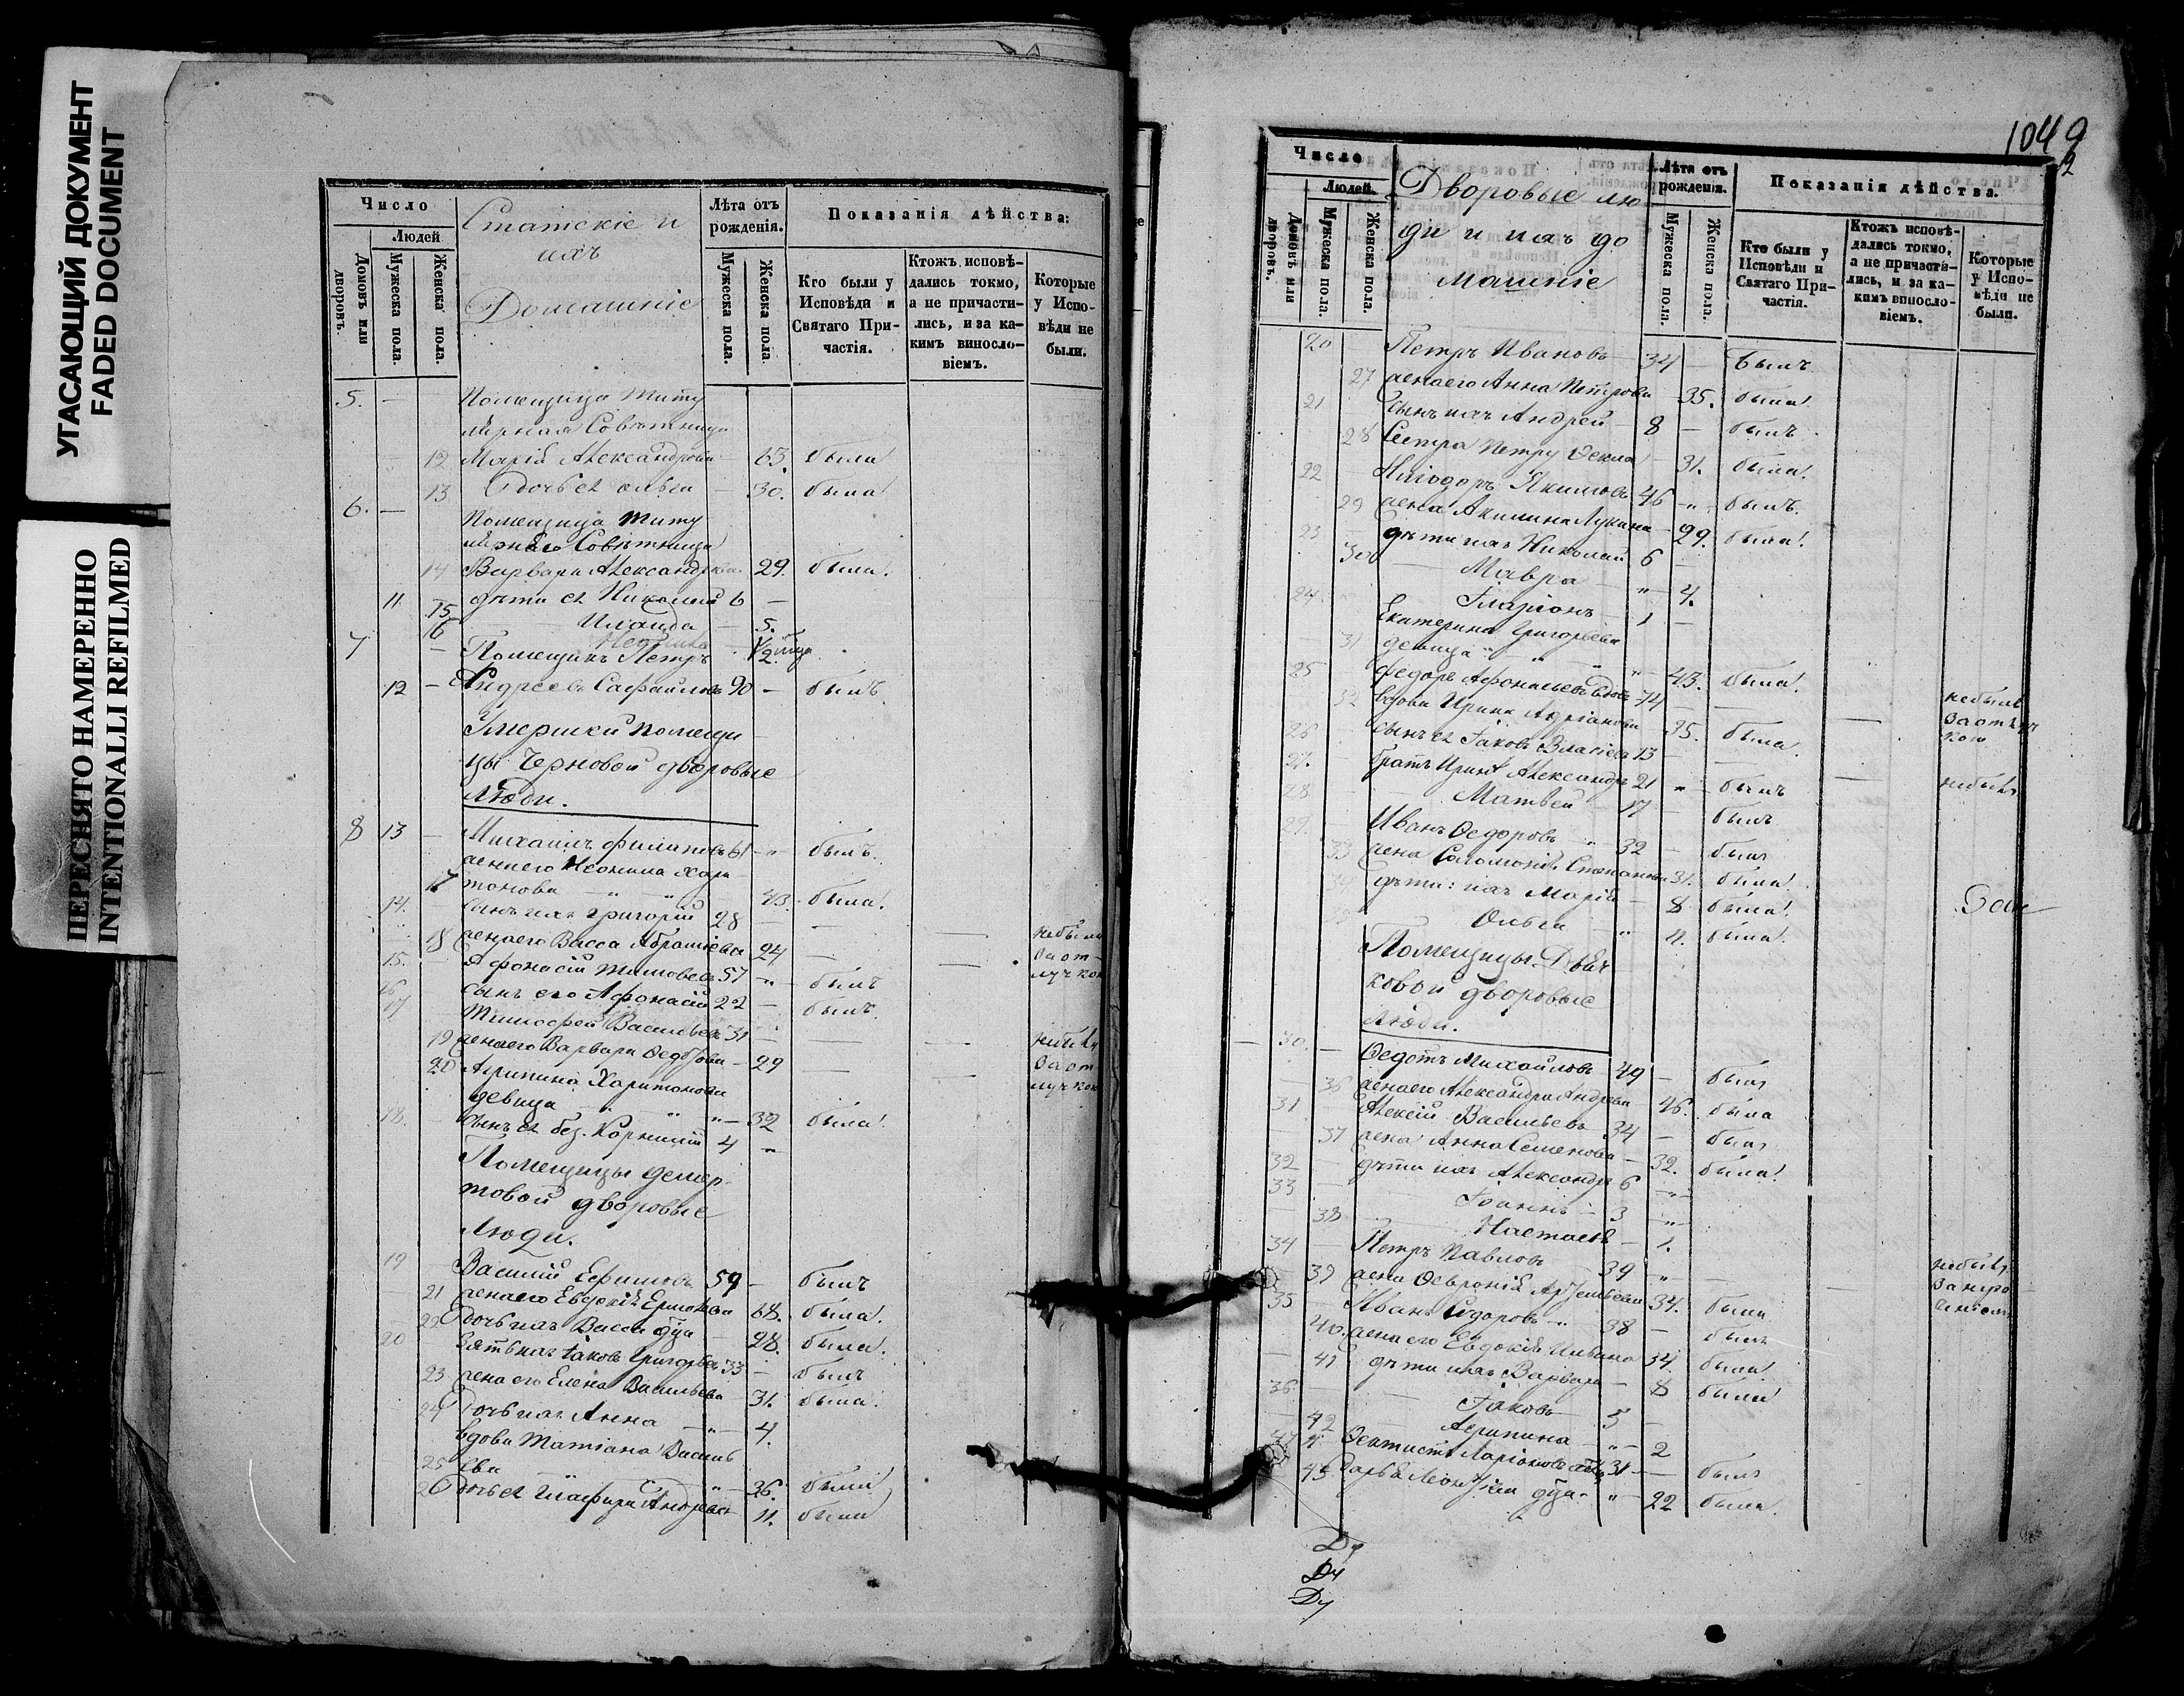 УГАСАЮЩИЙ ДОКУМЕНТ
FADED DOCUMENT
ПЕРЕСНЯТО НАМЕРЕННО
INTENTIONALLI REFILMED
Число
Людей
Домовъ или дворовъ.
Мужеска пола.
Женска пола.
Статскіе и
ихъ
Домашніе
Лѣта отъ рожденія.
Мужеска пола.
Женска пола.
Показанія дѣйства:
Кто были у Исповѣди и Святаго Причастія.
Ктожъ исповѣдались токмо, а не причастились, и за какимъ винословіемъ.
Которые у Исповѣди не были.
5. — Помещица Титу
лярная Совѣтница
12 Марія Александрова 65. была
13 дочь ея Ольга — 30. была
6. — Помещица Титу
Совѣтница
14 Варвара Александрова 29. была.
11 дѣти ея Николай 6 —
15 — 5.
16 1/2
7 Помещикъ Петръ
12 — Андреевъ 90 — былъ
Умершей помещи
цы Черновой дворовые
люди.
8 13 — Михаилъ Филиповъ 61 — былъ.
жена его Хари
17 тонова 43. была.
14. сынъ ихъ Григорій 28 —
18 жена его Васса 24 — не были
15. Афонасій 57 былъ за от
лучкою
16 сынъ его Афонасій 22 — былъ.
17 Тимофей Васильевъ 31 —
19 жена его Варвара Федорова — 29 — не были
20 Агрипина Харитонова за от
лучкою
девица — 32 была.
18. сынъ ея Корнилій 4
Помещицы Демер
товой дворовые
люди.
19 Василій Ефимовъ 59 — былъ
21 жена его 68. была.
22 дочь ихъ Васса 28. была.
20 зять ихъ Іаковъ Григорьевъ 33 — былъ
23 жена его Елена Васильева 31. была.
24 дочь ихъ Анна — 4.
вдова Татіана Василь
25 ева 36. была
26 дочь ея Андреева 11. была
1049
Число
Людей
Домовъ или дворовъ.
Мужеска пола.
Женска пола.
Дворовые лю
ди и ихъ до
машніе
Лѣта отъ рожденія.
Мужеска пола.
Женска пола.
Показанія дѣйства.
Кто были у Исповѣди и Святаго Причастія.
Ктожъ исповѣдались токмо, а не причастились, и за какимъ винословіемъ.
Которые у Исповѣди не были.
20 — Петръ Ивановъ 34 — былъ
27 жена его Анна Петрова 35. была.
21 сынъ ихъ Андрей 8 — былъ
28 Сестра Петру Фекла 31. была.
22 Якимовъ 46 былъ.
29 жена Акилина Лукина 29. была.
23 дѣти ихъ Николай 6 —
30 Мавра 4.
24 Іларіонъ 1 —
Екатерина Григорьева
31 девица 43. была.
25 Федоръ Афонасьевъ 74 — не былъ
32 вдова Ирина 35. была. за отлуч
кою
26 сынъ ея Іаковъ Власіевъ 13 —
27. братъ Ирины Александръ 21 былъ не былъ
28 Матвей 17 — былъ
29. Иванъ Федоровъ 32 — былъ
33 жена Соломонія Степанова 31. была.
34 дѣти: ихъ Марія — 8 была.
35 Ольга была.
Помещицы
ковой дворовые
люди.
30. — Федотъ Михайловъ 49 — былъ
36 жена его Александра Андреева 46. была
31 Алексій Васильевъ 34 — былъ
37 жена Анна Семенова — 32. была.
32 дѣти ихъ Александръ 6
33 Іоаннъ — 3
38 Настасія — 1.
34 Петръ Павловъ 39 не былъ
39 жена Февронія 34. была
35 Иванъ 38 — былъ
40. жена его Евдокія Ильина 34 была
41 дѣти ихъ Варвара — 8 была
36 Іаковъ 5 —
42 Агрипина 2
Феоктистъ Ларіоновъ 31 — былъ
43 Дарья 22 была.